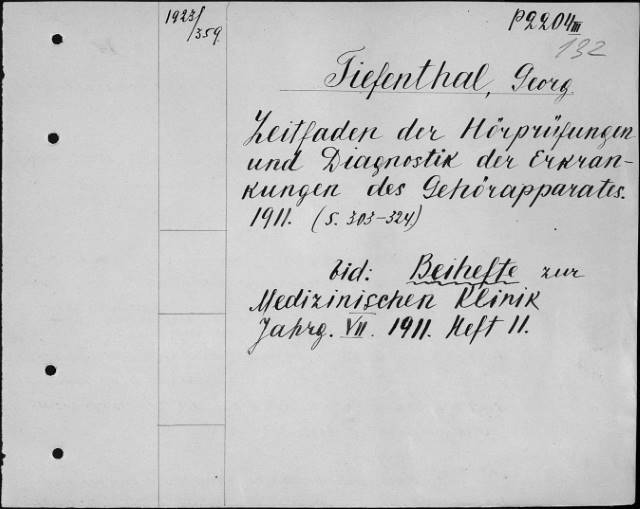 1923/
/359.
P2204III
132
Tiefenthal, Georg
Leitfaden der Hörprüfungen
und Diagnostik der Erkran-
kungen des Gehörapparates.
1911. (S. 303-324)
bid: Beihefte zur
Medizinischen Klinik
Jahrg. VII. 1911. Heft 11.